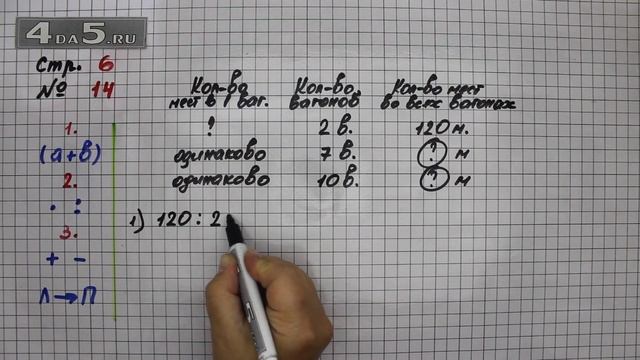 4DA5.RU
Стр. 6
№ 14
1.
(а+в)
2.
· :
3.
+ −
Л→П
Кол-во Кол-во Кол-во мест
мест в 1 ваг. вагонов во всех вагонах
? 2 в. 120 м.
одинаково 7 в. ? м
одинаково 10 в. ? м
1) 120 : 2